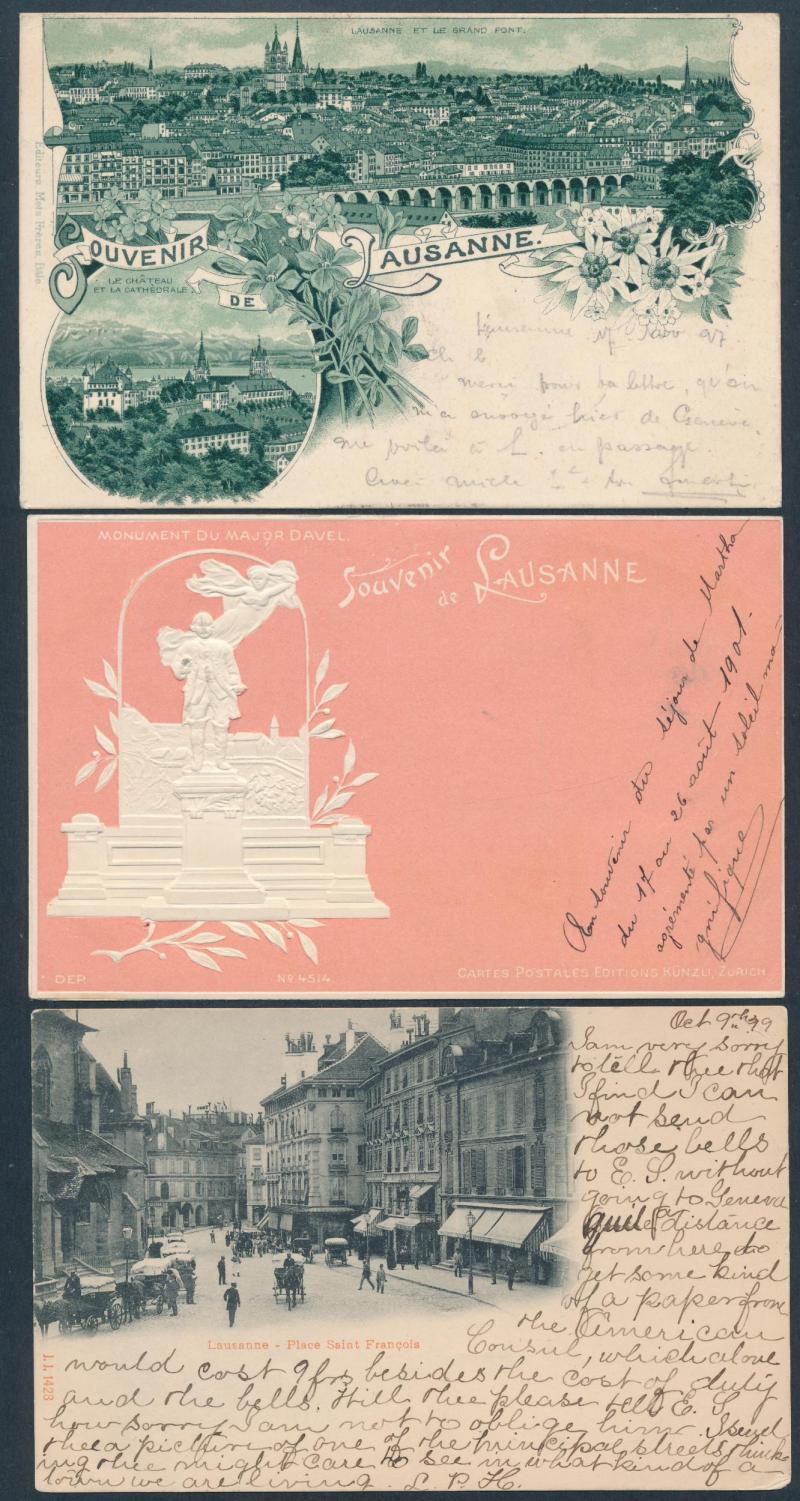 LAUSANNE ET LE GRAND PONT.
Editeurs Metz Frères, Bâle
SOUVENIR
DE
LAUSANNE.
LE CHÂTEAU
ET LA CATHÉDRALE.
Lausanne 17 97
merci pour ta lettre, qu'on
m'a envoyé hier de Genève.
me voilà à L. en passage.
MONUMENT DU MAJOR DAVEL.
Souvenir
de LAUSANNE
En souvenir du séjour de Martha
du 17 au 26 août 1901.
agrémenté par un soleil ma-
gnifique
DEP.
No 4514.
CARTES POSTALES EDITIONS KÜNZLI, ZURICH
Oct 9th 99
I am very sorry
to tell thee that
I find I can
not send
those bells
to E. S. without
going to Geneva
quite distance
from here to
get some kind
of a paper from
the American
Consul, which alone
Lausanne - Place Saint François
J.J. 1423
would cost 9frs besides the cost of duty
and the bells. Will thee please tell E. S.
how sorry I am not to oblige him. I send
thee a picture of one of the principal streets think-
ing thee might care to see in what kind of a
town we are living. L. P. H.